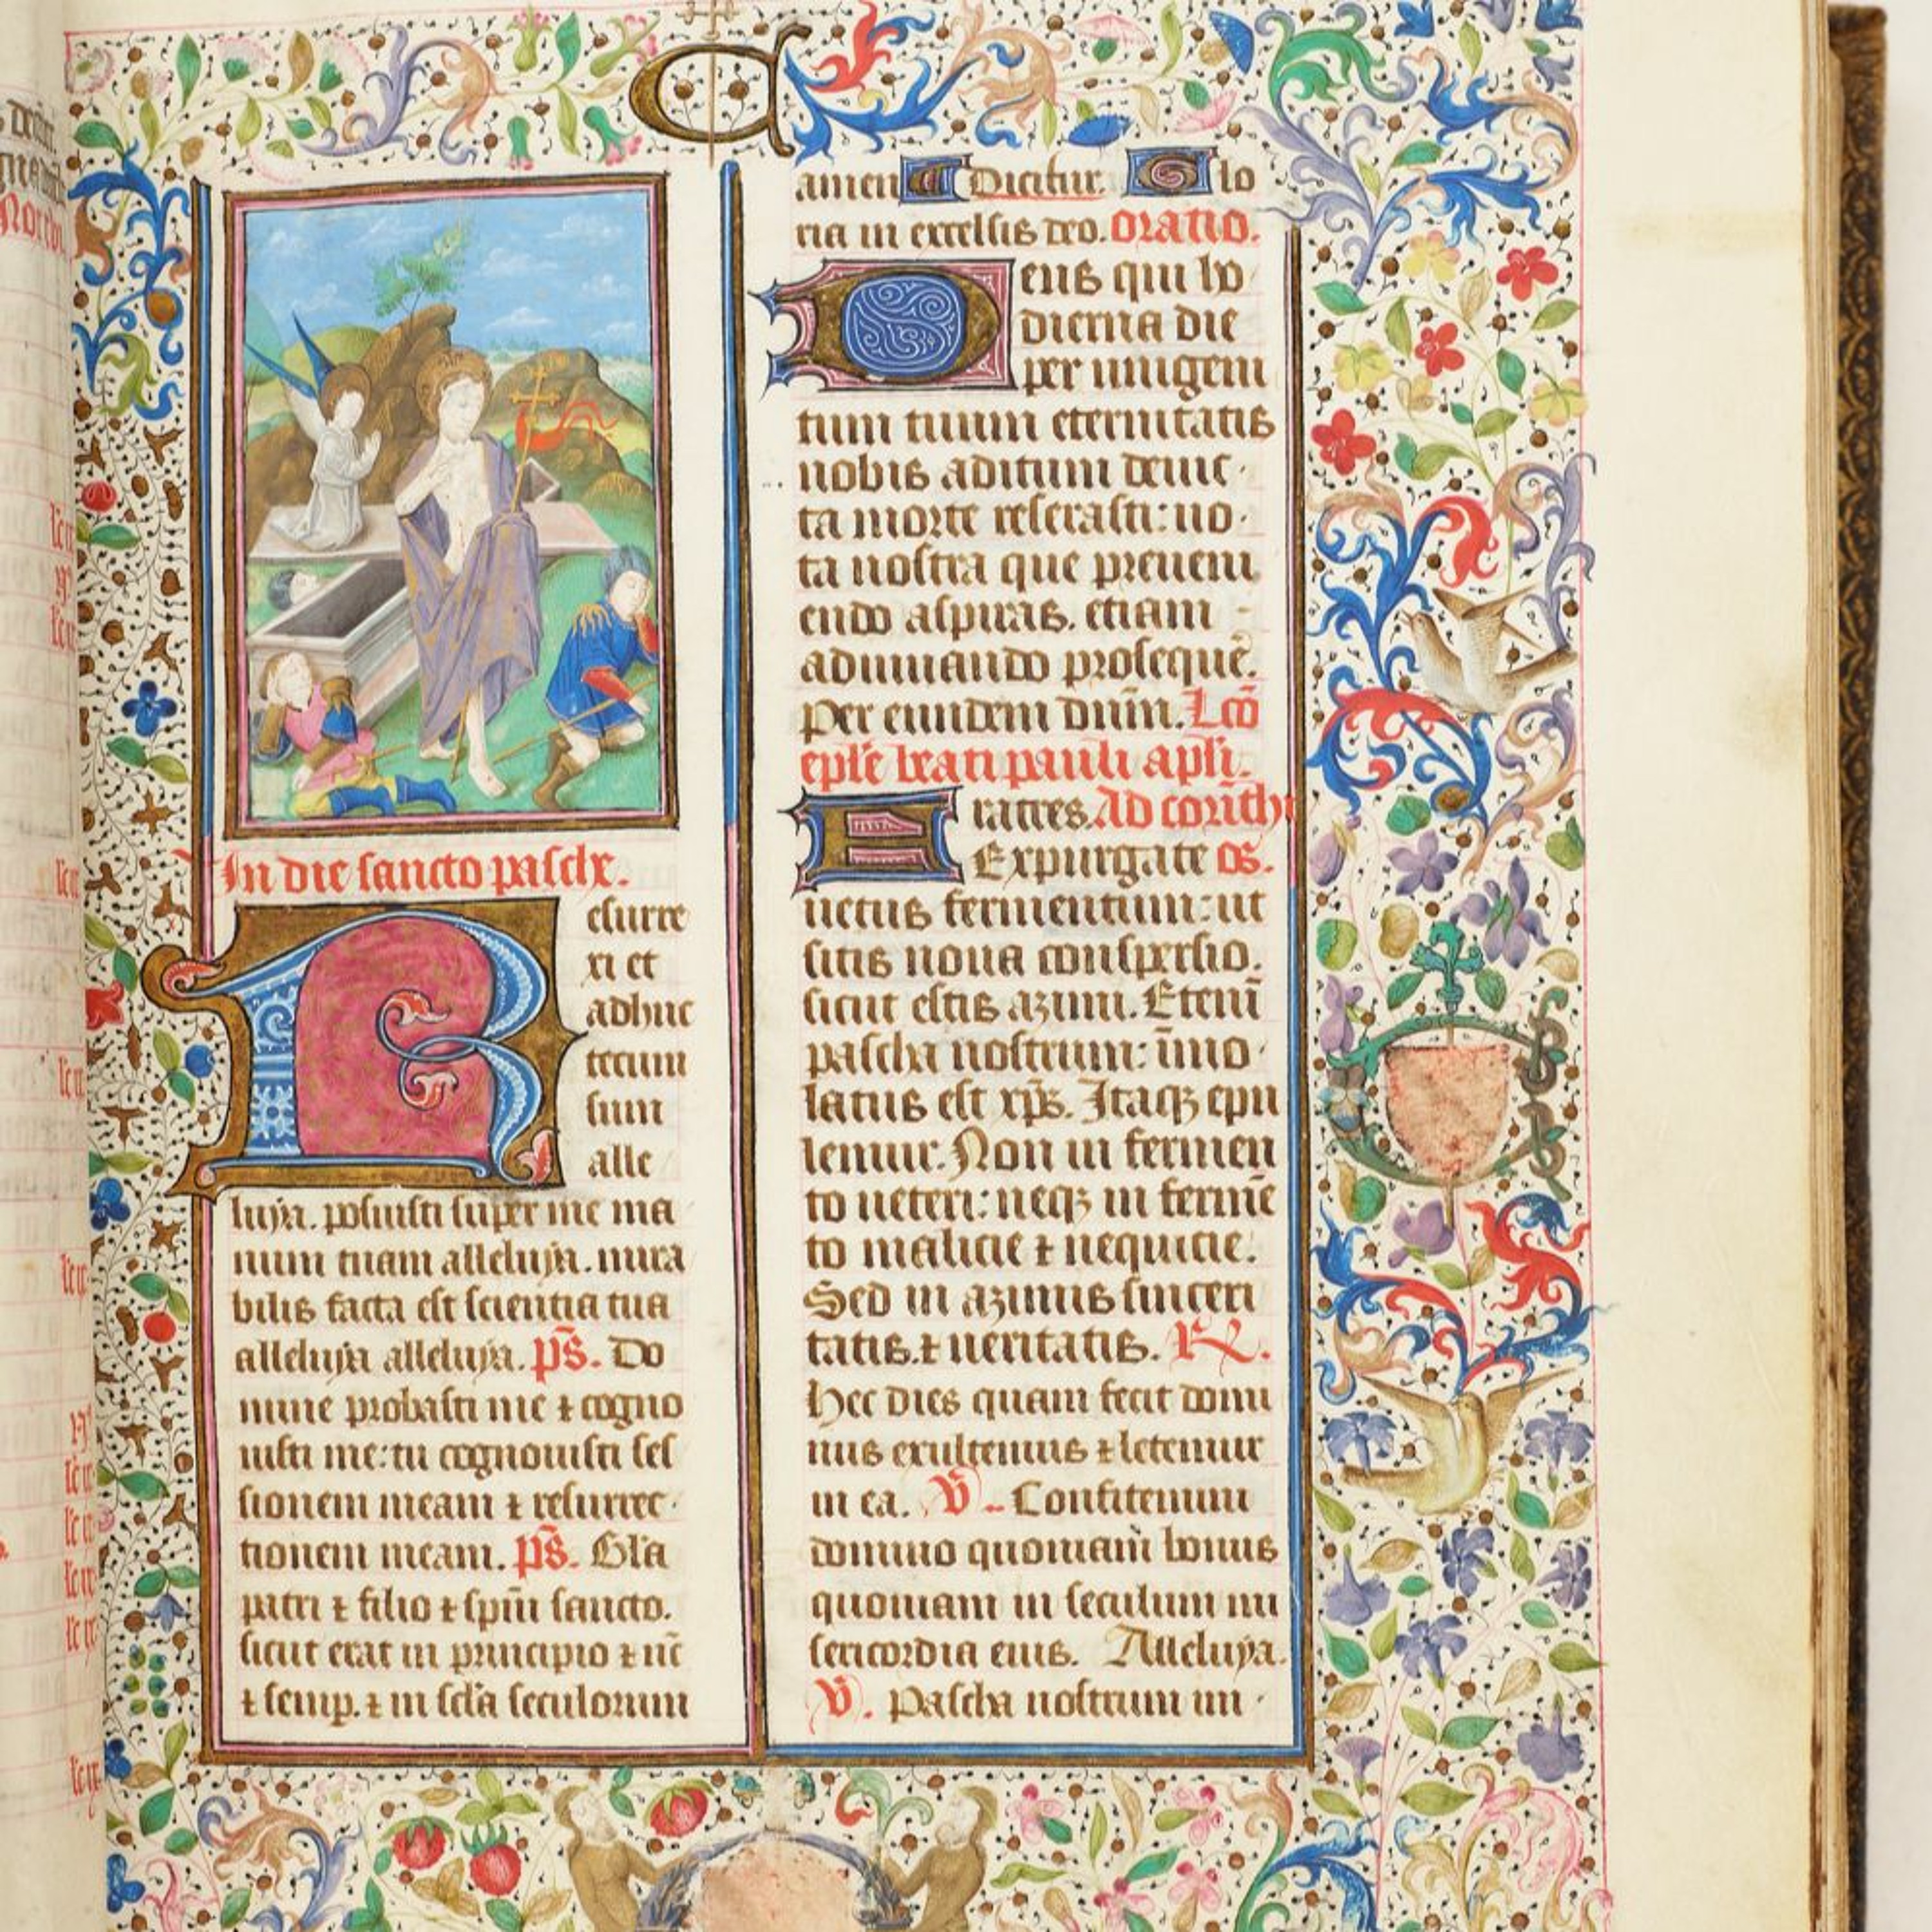 In die sancto pasche.
Resurre
xi et
adhuc
tecum
sum
alle
luya. posuisti super me ma
num tuam alleluya. mira
bilis facta est scientia tua
alleluya alleluya. ps̄. Do
mine probasti me ⁊ cogno
uisti me: tu cognouisti ses
sionem meam ⁊ resurrec
tionem meam. ps̄. Gl'a
patri ⁊ filio ⁊ sp̄m sancto.
sicut erat in principio ⁊ nc̄
⁊ semp. ⁊ in scl'a seculorum
amen Dicitur. Glo
ria in excelsis deo. Oratio.
Deus qui ho
dierna die
per unigeni
tum tuum eternitatis
nobis aditum deuic
ta morte reserasti: uo
ta nostra que preueni
endo aspiras. etiam
adiuuando proseque̅.
Per eundem dn̄m. Lc̄o
ep̄le beati pauli ap̄li.
Fratres. Ad corinthi
Expurgate os.
uetus fermentum: ut
sitis noua conspersio.
sicut estis azimi. Eteni̅
pascha nostrum: i̅mo
latus est xp̄s. Itaqꝫ epu
lemur. Non in fermen
to ueteri: neqꝫ in ferme̅
to malicie ⁊ nequicie.
Sed in azimis sinceri
tatis. ⁊ ueritatis. R.
Hec dies quam fecit domi
nus exultemus ⁊ letemur
in ea. V. Confitemini
domino quoniam bonus
quoniam in seculum mi
sericordia eius. Alleluya.
V. Pascha nostrum im